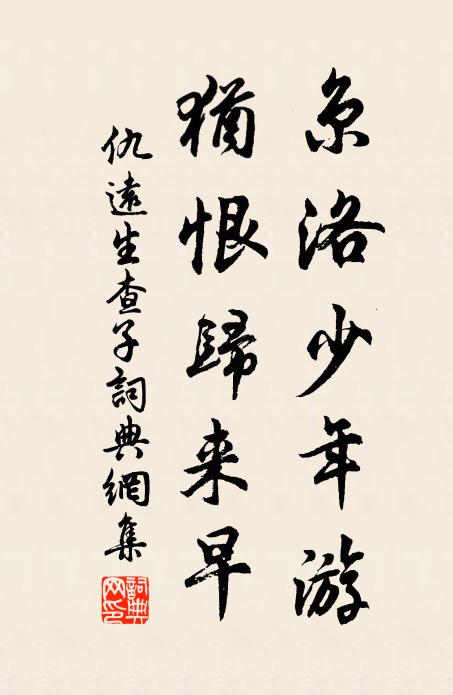 京洛少年游
猶恨歸来早
仇遠生查子詞典網集
詞典网印